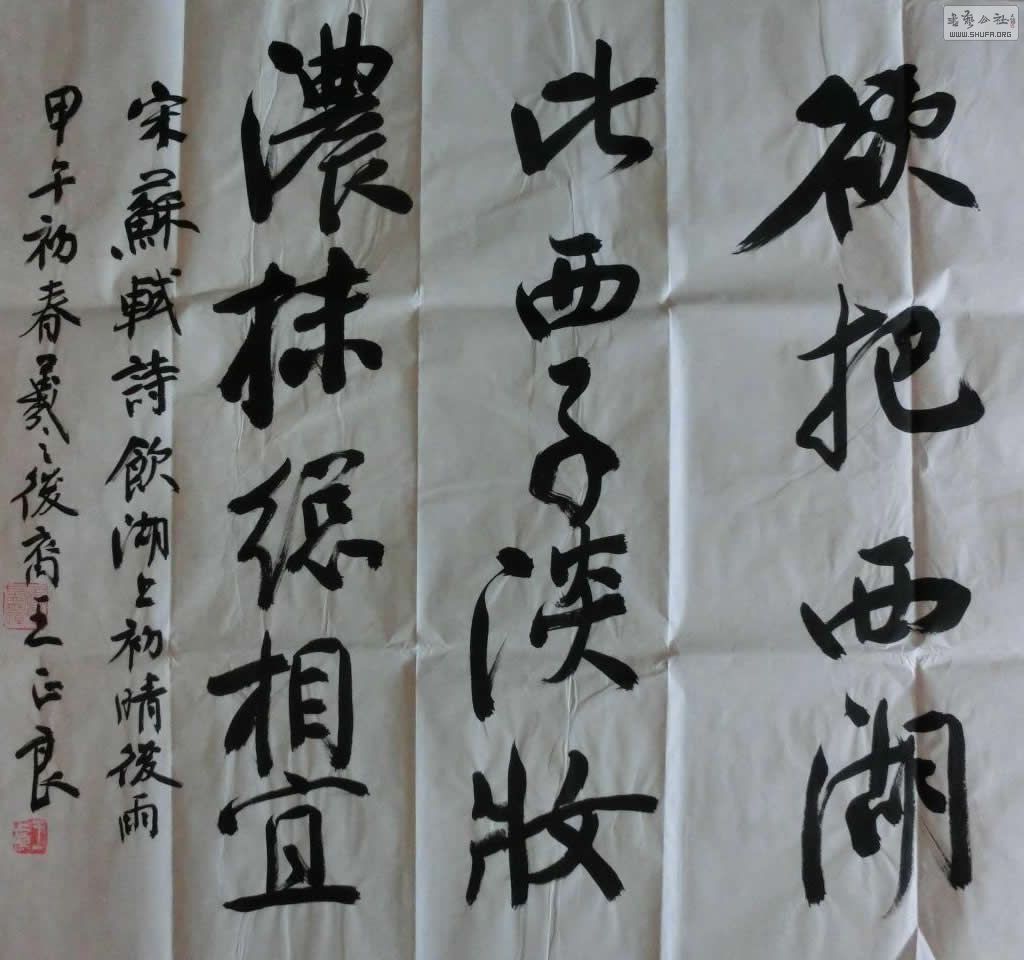 欲把西湖
比西子淡妝
濃抹總相宜
宋蘇軾詩飲湖上初晴後雨
甲午初春羲之後裔王正良
書藝公社
WWW.SHUFA.ORG